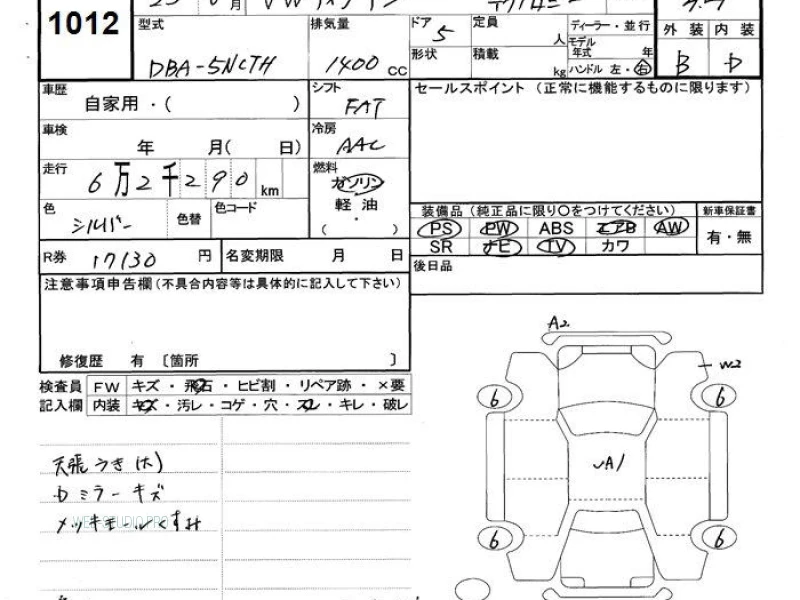 1012
月 VW
型式
DBA-5NCTH
排気量
1400 cc
ドア
5
形状
定員
人
積載
kg
ディーラー・並行
モデル
年式 年
ハンドル 左・右
外装 内装
B D
車歴
自家用・( )
シフト
FAT
車検
年 月( 日)
冷房
AAC
走行
6万2千290 km
燃料
ガソリン
軽油
( )
色
シルバー
色替
色コード
R券 17130 円
名変期限 月 日
セールスポイント (正常に機能するものに限ります)
装備品(純正品に限り○をつけてください)
新車保証書
PS PW ABS エアB AW
SR ナビ TV カワ
有・無
後日品
注意事項申告欄(不具合内容等は具体的に記入して下さい)
修復歴 有 〔箇所 〕
検査員
記入欄
FW キズ・飛石・ヒビ割・リペア跡・×要
内装 キズ・汚レ・コゲ・穴・スレ・キレ・破レ
天張うき(大)
Dミラーキズ
メッキモールくすみ
A2
W2
6 6
A1
6 6